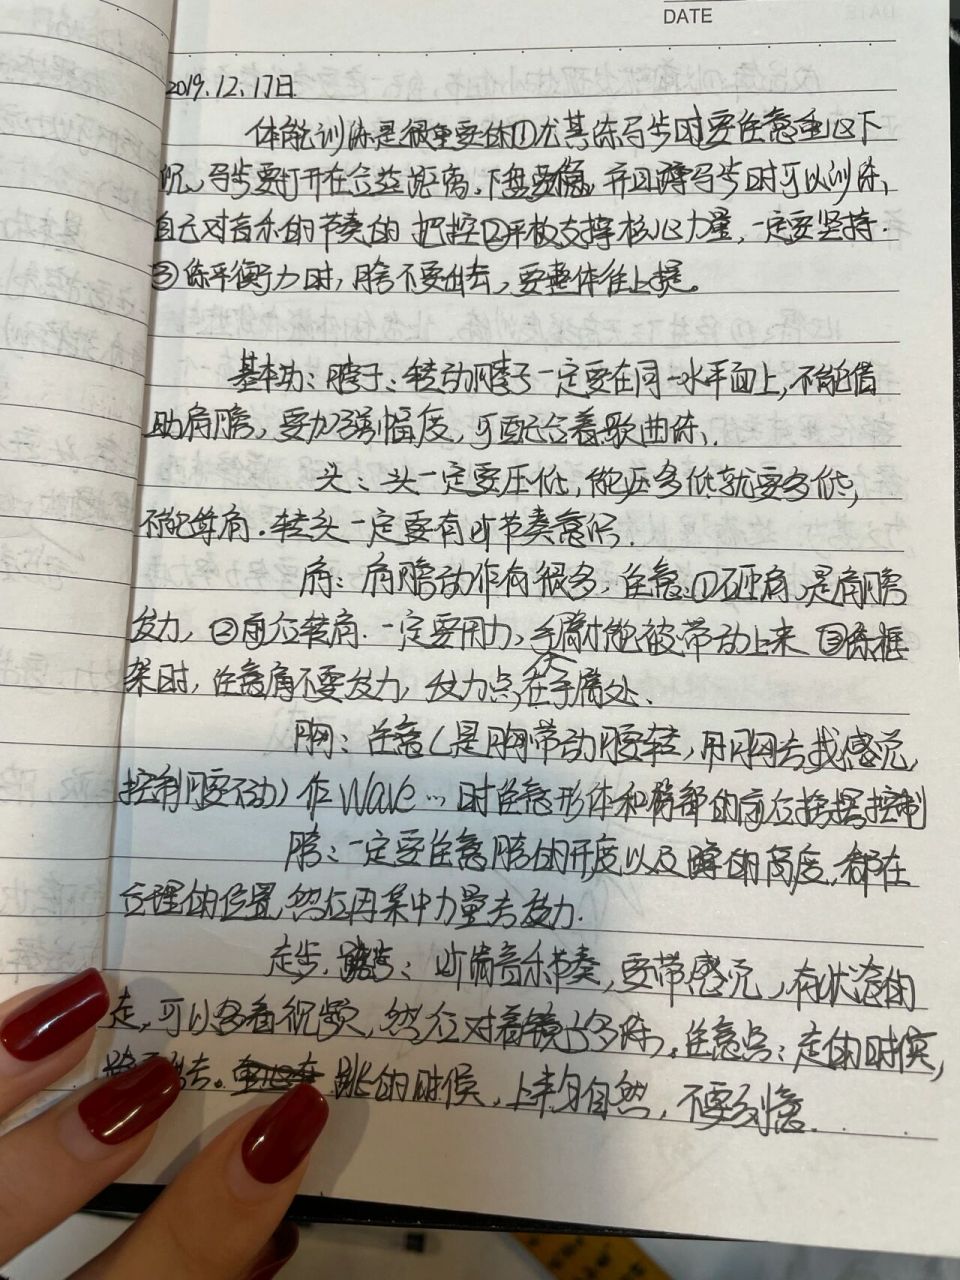 DATE
2019.12.17日
体能训练是很重要的①尤其练弓步时要注意重心下
沉,弓步要打开在合适距离,下盘要稳,并且蹲弓步时可以训练
自己对音乐的节奏的把控②平板支撑核心力量,一定要坚持.
③练平衡力时,胯不要出去,要整体往上提。
基本功:脖子:转动脖子一定要在同一水平面上,不能借
助肩膀,要加强幅度,可配合着歌曲练.
头:头一定要压低,能压多低就要多低,
不能耸肩.转头一定要有节奏意识.
肩:肩膀动作有很多,注意:①砸肩,是肩膀
发力,②前后转肩.一定要用力,手臂才能被带动上来③练框
架时,注意肩不要发力,发力点在手臂处、
胸:注意(是胸带动腰转,用胸去找感觉,
控制腰不动)作Wave…时注意形体和臀部的前后控制
胯:一定要注意胯的开度以及蹲的高度,都在
合理的位置,然后再集中力量去发力.
走步,:听清音乐节奏,要带感觉,有状态的
走,可以多看视频,然后对着镜子多练,注意点:走的时候,
去。跳的时候,上半身自然,不要刻意.